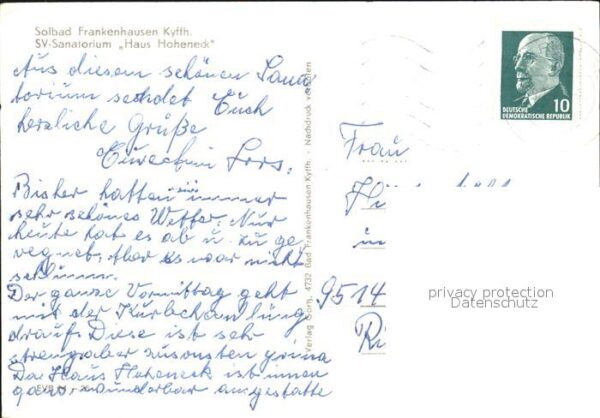 Solbad Frankenhausen Kyffh.
SV-Sanatorium „Haus Hoheneck"
Aus diesem schönen Sana
torium sendet Euch
herzliche Grüße
Bisher hatten wir immer
sehr schönes Wetter. Nur
heute hat es ab u. zu ge
regnet. Aber es war nicht
schlimm.
Der ganze Vormittag geht
mit der Kurbehandlung
drauf. Diese ist sehr
streng aber ansonsten prima
Das Haus Hoheneck ist innen
ganz wunderbar ausgestatte
Verlag Gorg, 4732 Bad Frankenhausen Kyffh. · Nachdruck verboten
DEUTSCHE
DEMOKRATISCHE REPUBLIK
10
Frau
in
9514
privacy protection
Datenschutz